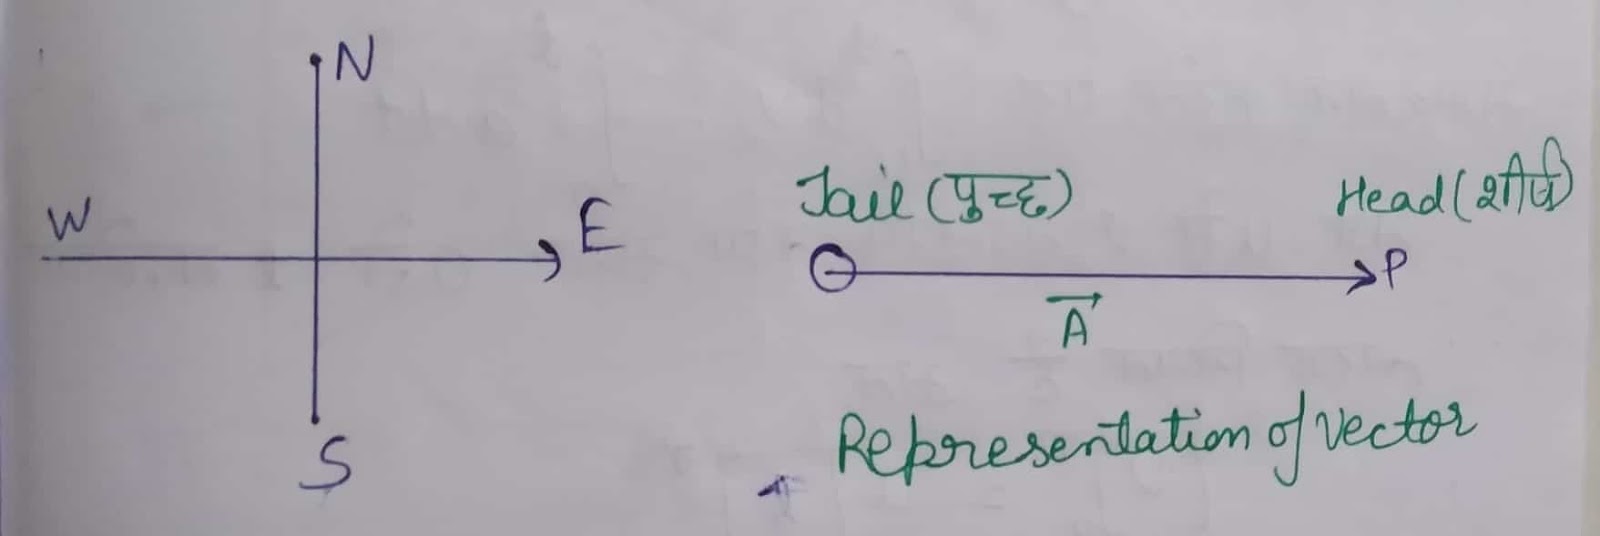 N
W
E
S
Tail (पुच्छ) Head (शीर्ष)
P
A
Representation of vector